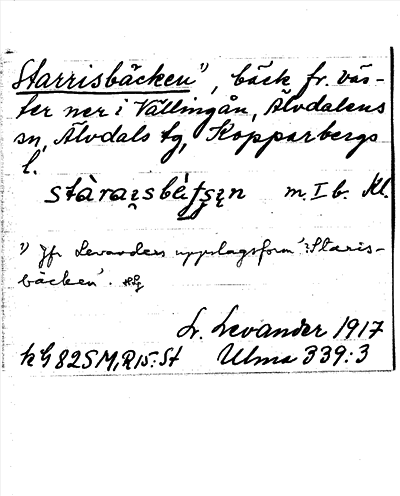 Starrisbäcken¹), bäck fr. väs-
ter ner i Vällingån, Älvdalens
sn, Älvdals tg, Kopparbergs
l.
m. I b. Kl.
¹) Jfr Levanders uppslagsform 'Staris-
bäcken'.
Lr. Levander 1917
82SM, R15: St Ulma 339:3